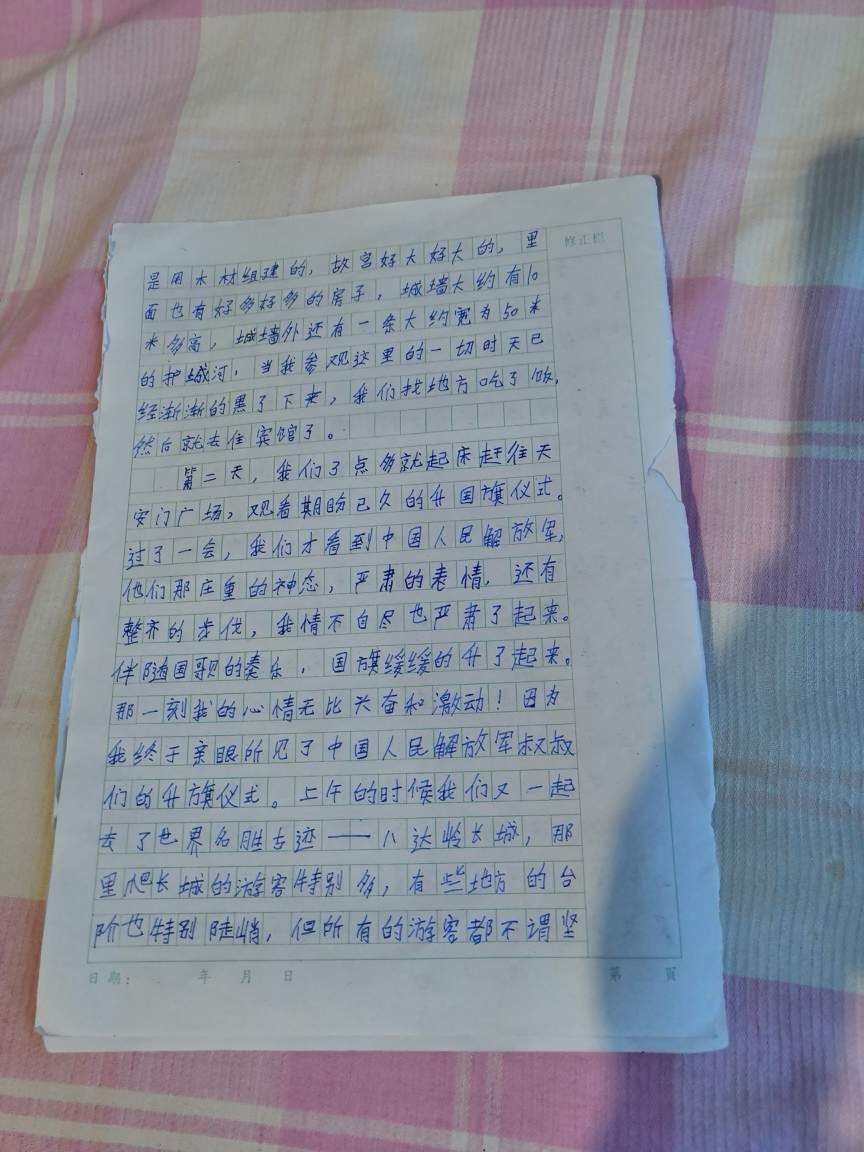 修正栏
是用木材组建的，故宫好大好大的，里
面也有好多好多的房子，城墙大约有10
米多高，城墙外还有一条大约宽为50米
的护城河，当我参观这里的一切时天已
经渐渐的黑了下来，我们找地方吃了饭，
然后就去住宾馆了。
第二天，我们3点多就起床赶往天
安门广场，观看期盼已久的升国旗仪式。
过了一会，我们才看到中国人民解放军，
他们那庄重的神态，严肃的表情，还有
整齐的步伐，我情不自尽也严肃了起来。
伴随国歌的奏乐，国旗缓缓的升了起来。
那一刻我的心情无比兴奋和激动！因为
我终于亲眼所见了中国人民解放军叔叔
们的升旗仪式。上午的时候我们又一起
去了世界名胜古迹——八达岭长城，那
里爬长城的游客特别多，有些地方的台
阶也特别陡峭，但所有的游客都不谓坚
日期： 年 月 日 第 頁